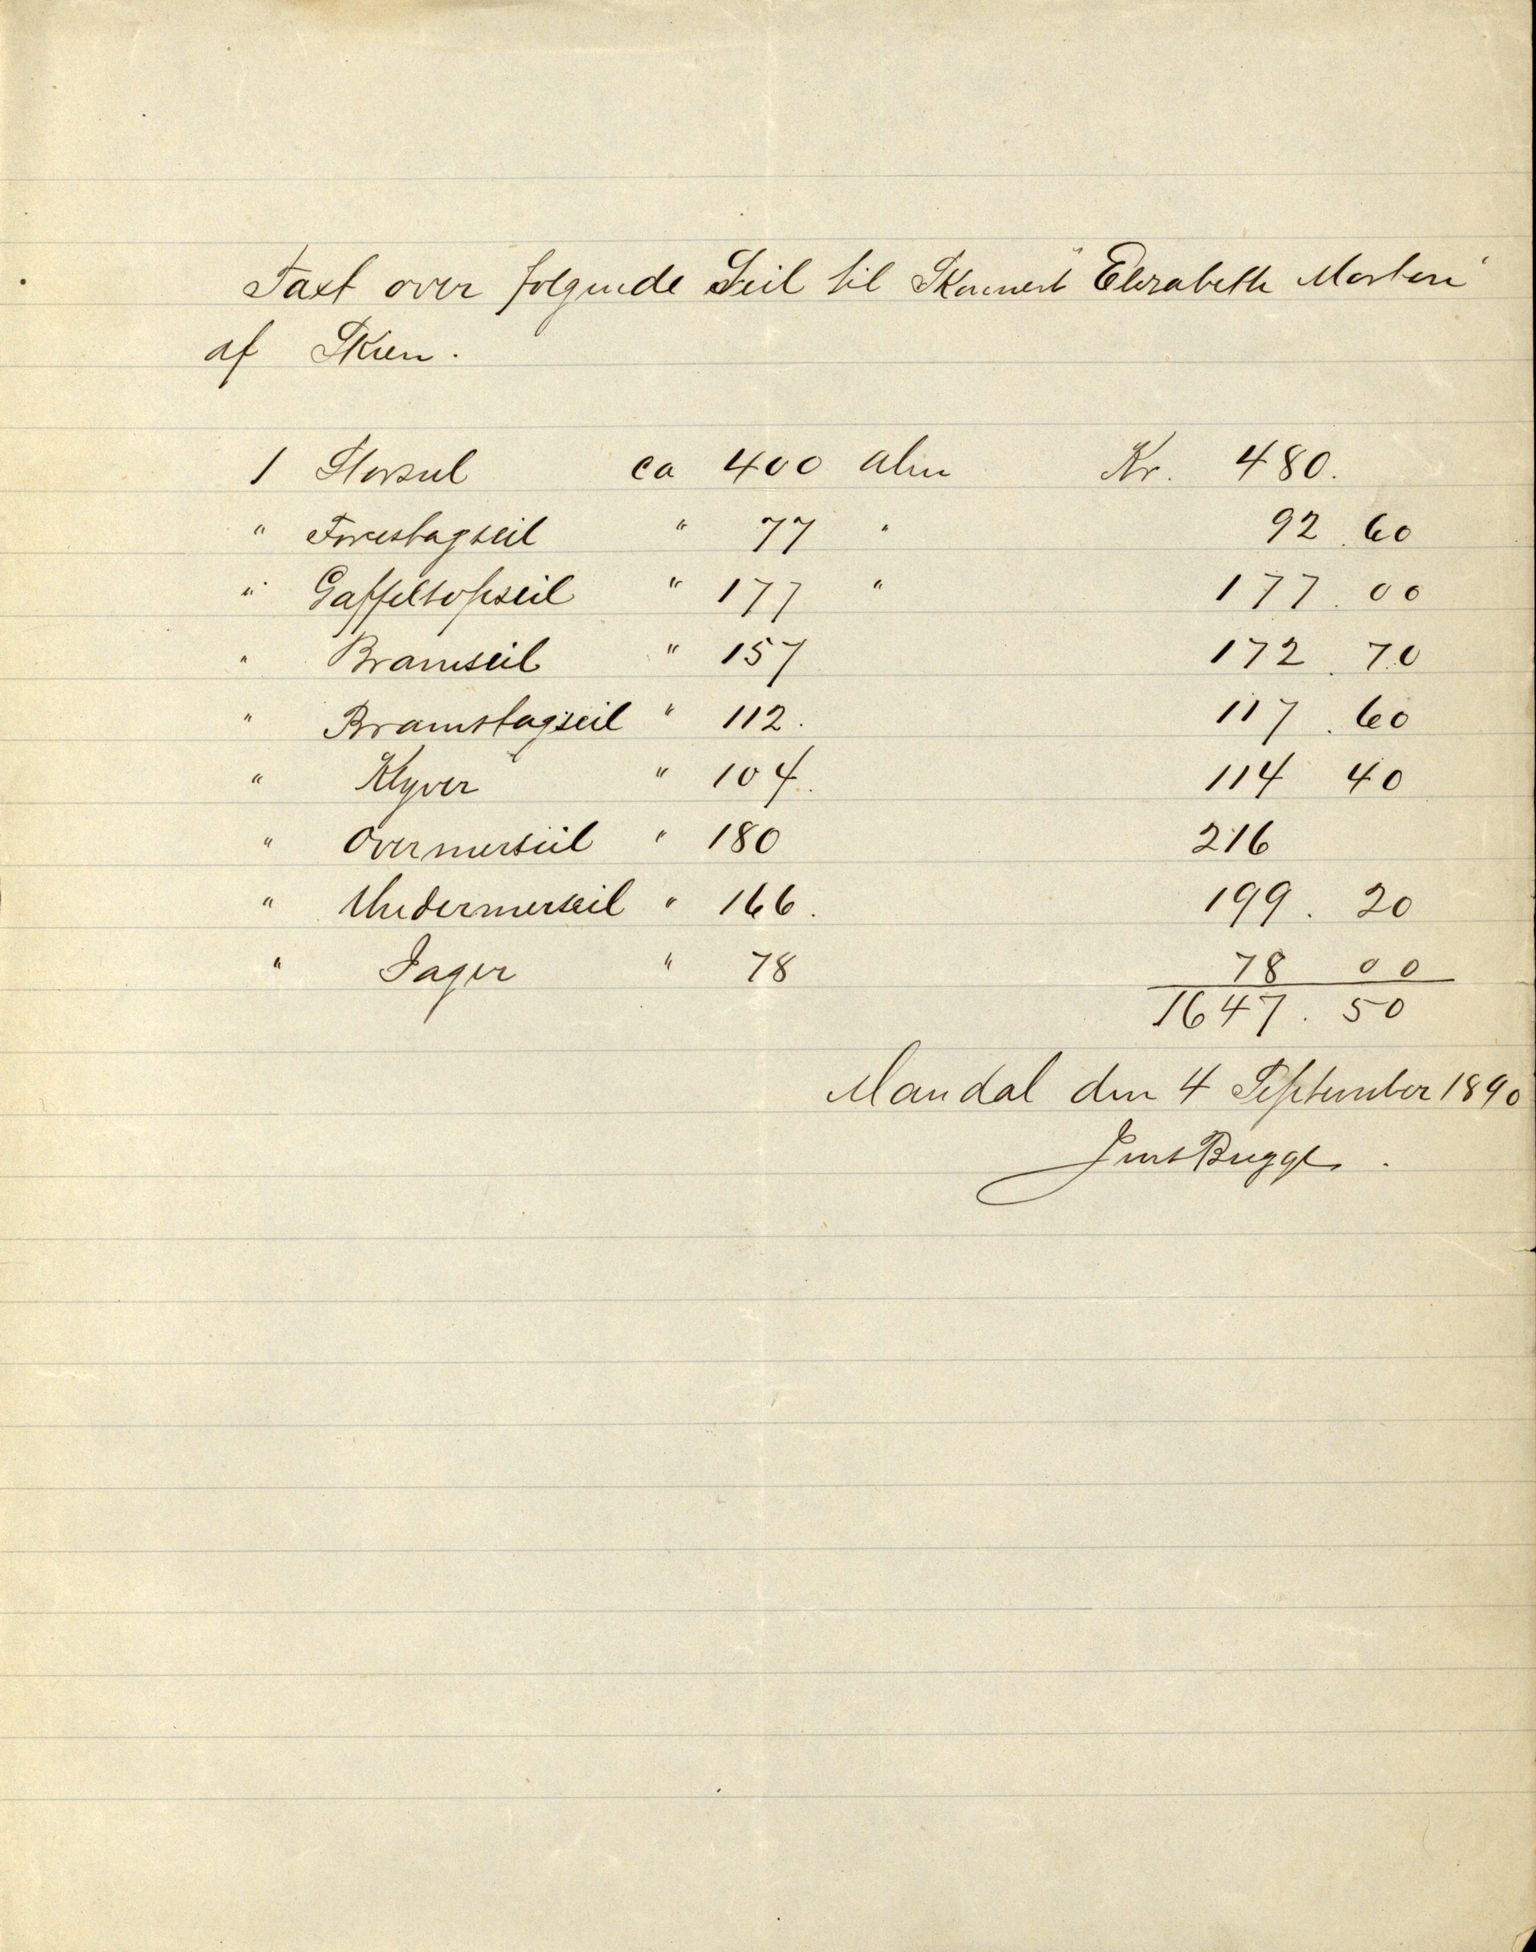 Taxt over følgende Seil til Skonnert "Elisabeth Morten"
af Skien.
1 Storseil ca 400 alen Kr. 480.
" Forestagseil " 77 " 92.60
" Gaffeltopseil " 177 " 177.00
" Bramseil " 157 172.70
" Bramstagseil " 112. 117.60
" Klyver " 104. 114 40
" Overmerseil " 180 216
" Undermerseil " 166. 199.20
" Jager " 78 78 00
1647.50
Mandal den 4 September 1890
Jens Bugge.